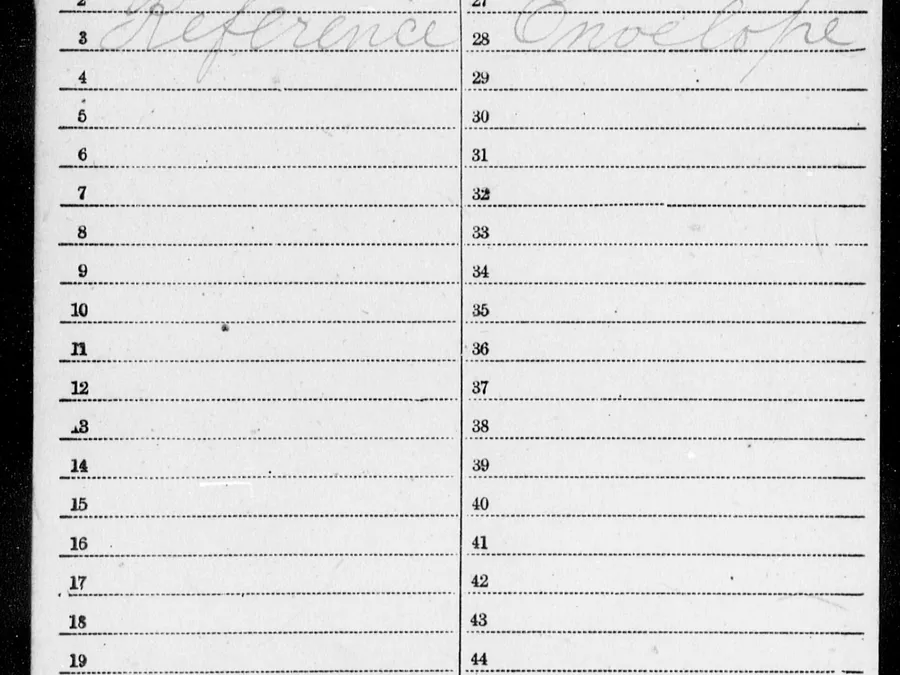 2 27
3 Reference 28 Envelope
4 29
5 30
6 31
7 32
8 33
9 34
10 35
11 36
12 37
13 38
14 39
15 40
16 41
17 42
18 43
19 44